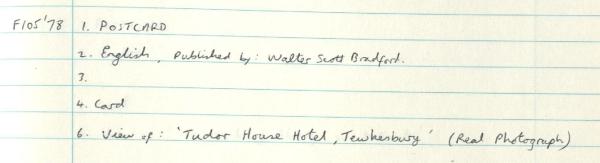 F105'78 1. POSTCARD
2. English, Published by: Walter Scott Bradford.
3.
4. Card
6. View of: 'Tudor House Hotel, Tewkesbury' (Real Photograph)